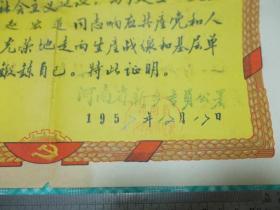 社会主义建设
同志响应共产党和人
光荣地走向生产战线和基层单
锻炼自己。特此证明。
河南省新乡专员公署
195 年 月 日